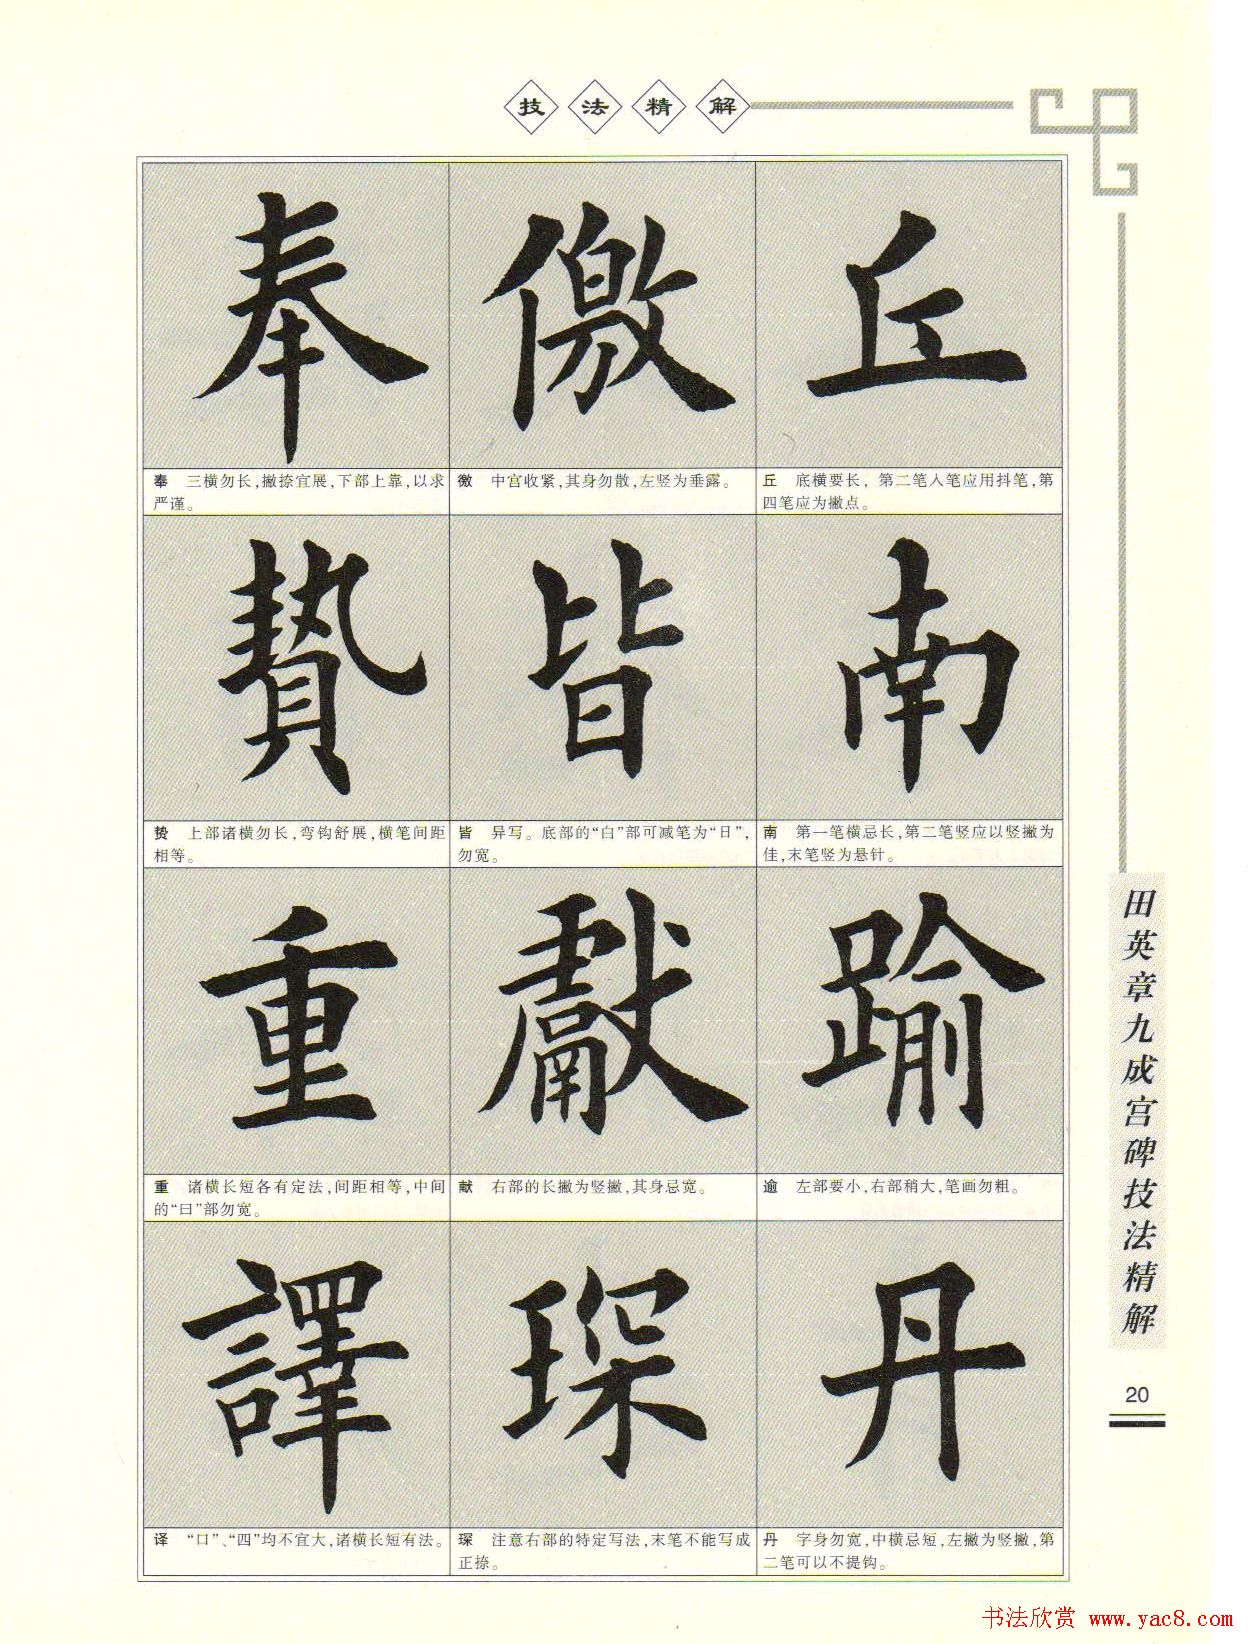 技法精解
奉 儌 丘
奉 三横勿长,撇捺宜展,下部上靠,以求
严谨。
儌 中宫收紧,其身勿散,左竖为垂露。
丘 底横要长，第二笔人笔应用抖笔,第
四笔应为撇点。
贄 皆 南
贽 上部诸横勿长,弯钩舒展,横笔间距
相等。
皆 异写。底部的“白”部可减笔为“日”,
勿宽。
南 第一笔横忌长,第二笔竖应以竖撇为
佳,末笔竖为悬针。
重 獻 踰
重 诸横长短各有定法,间距相等,中间
的“曰”部勿宽。
献 右部的长撇为竖撇,其身忌宽。
逾 左部要小,右部稍大,笔画勿粗。
譯 琛 丹
译 “口”、“四”均不宜大,诸横长短有法。
琛 注意右部的特定写法,末笔不能写成
正捺。
丹 字身勿宽,中横忌短,左撇为竖撇,第
二笔可以不提钩。
田英章九成宫碑技法精解
20
书法欣赏 www.yac8.com